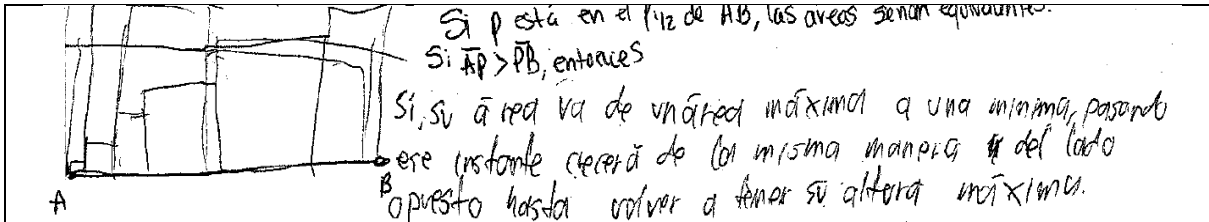 Si P está en el P1/2 de AB, las areas serian equivalentes.
Si AP > PB, entonces
Si, su área va de un área máxima a una mínima, pasando
ese instante crecerá de la misma manera del lado
opuesto hasta volver a tener su altura máxima.
A
B